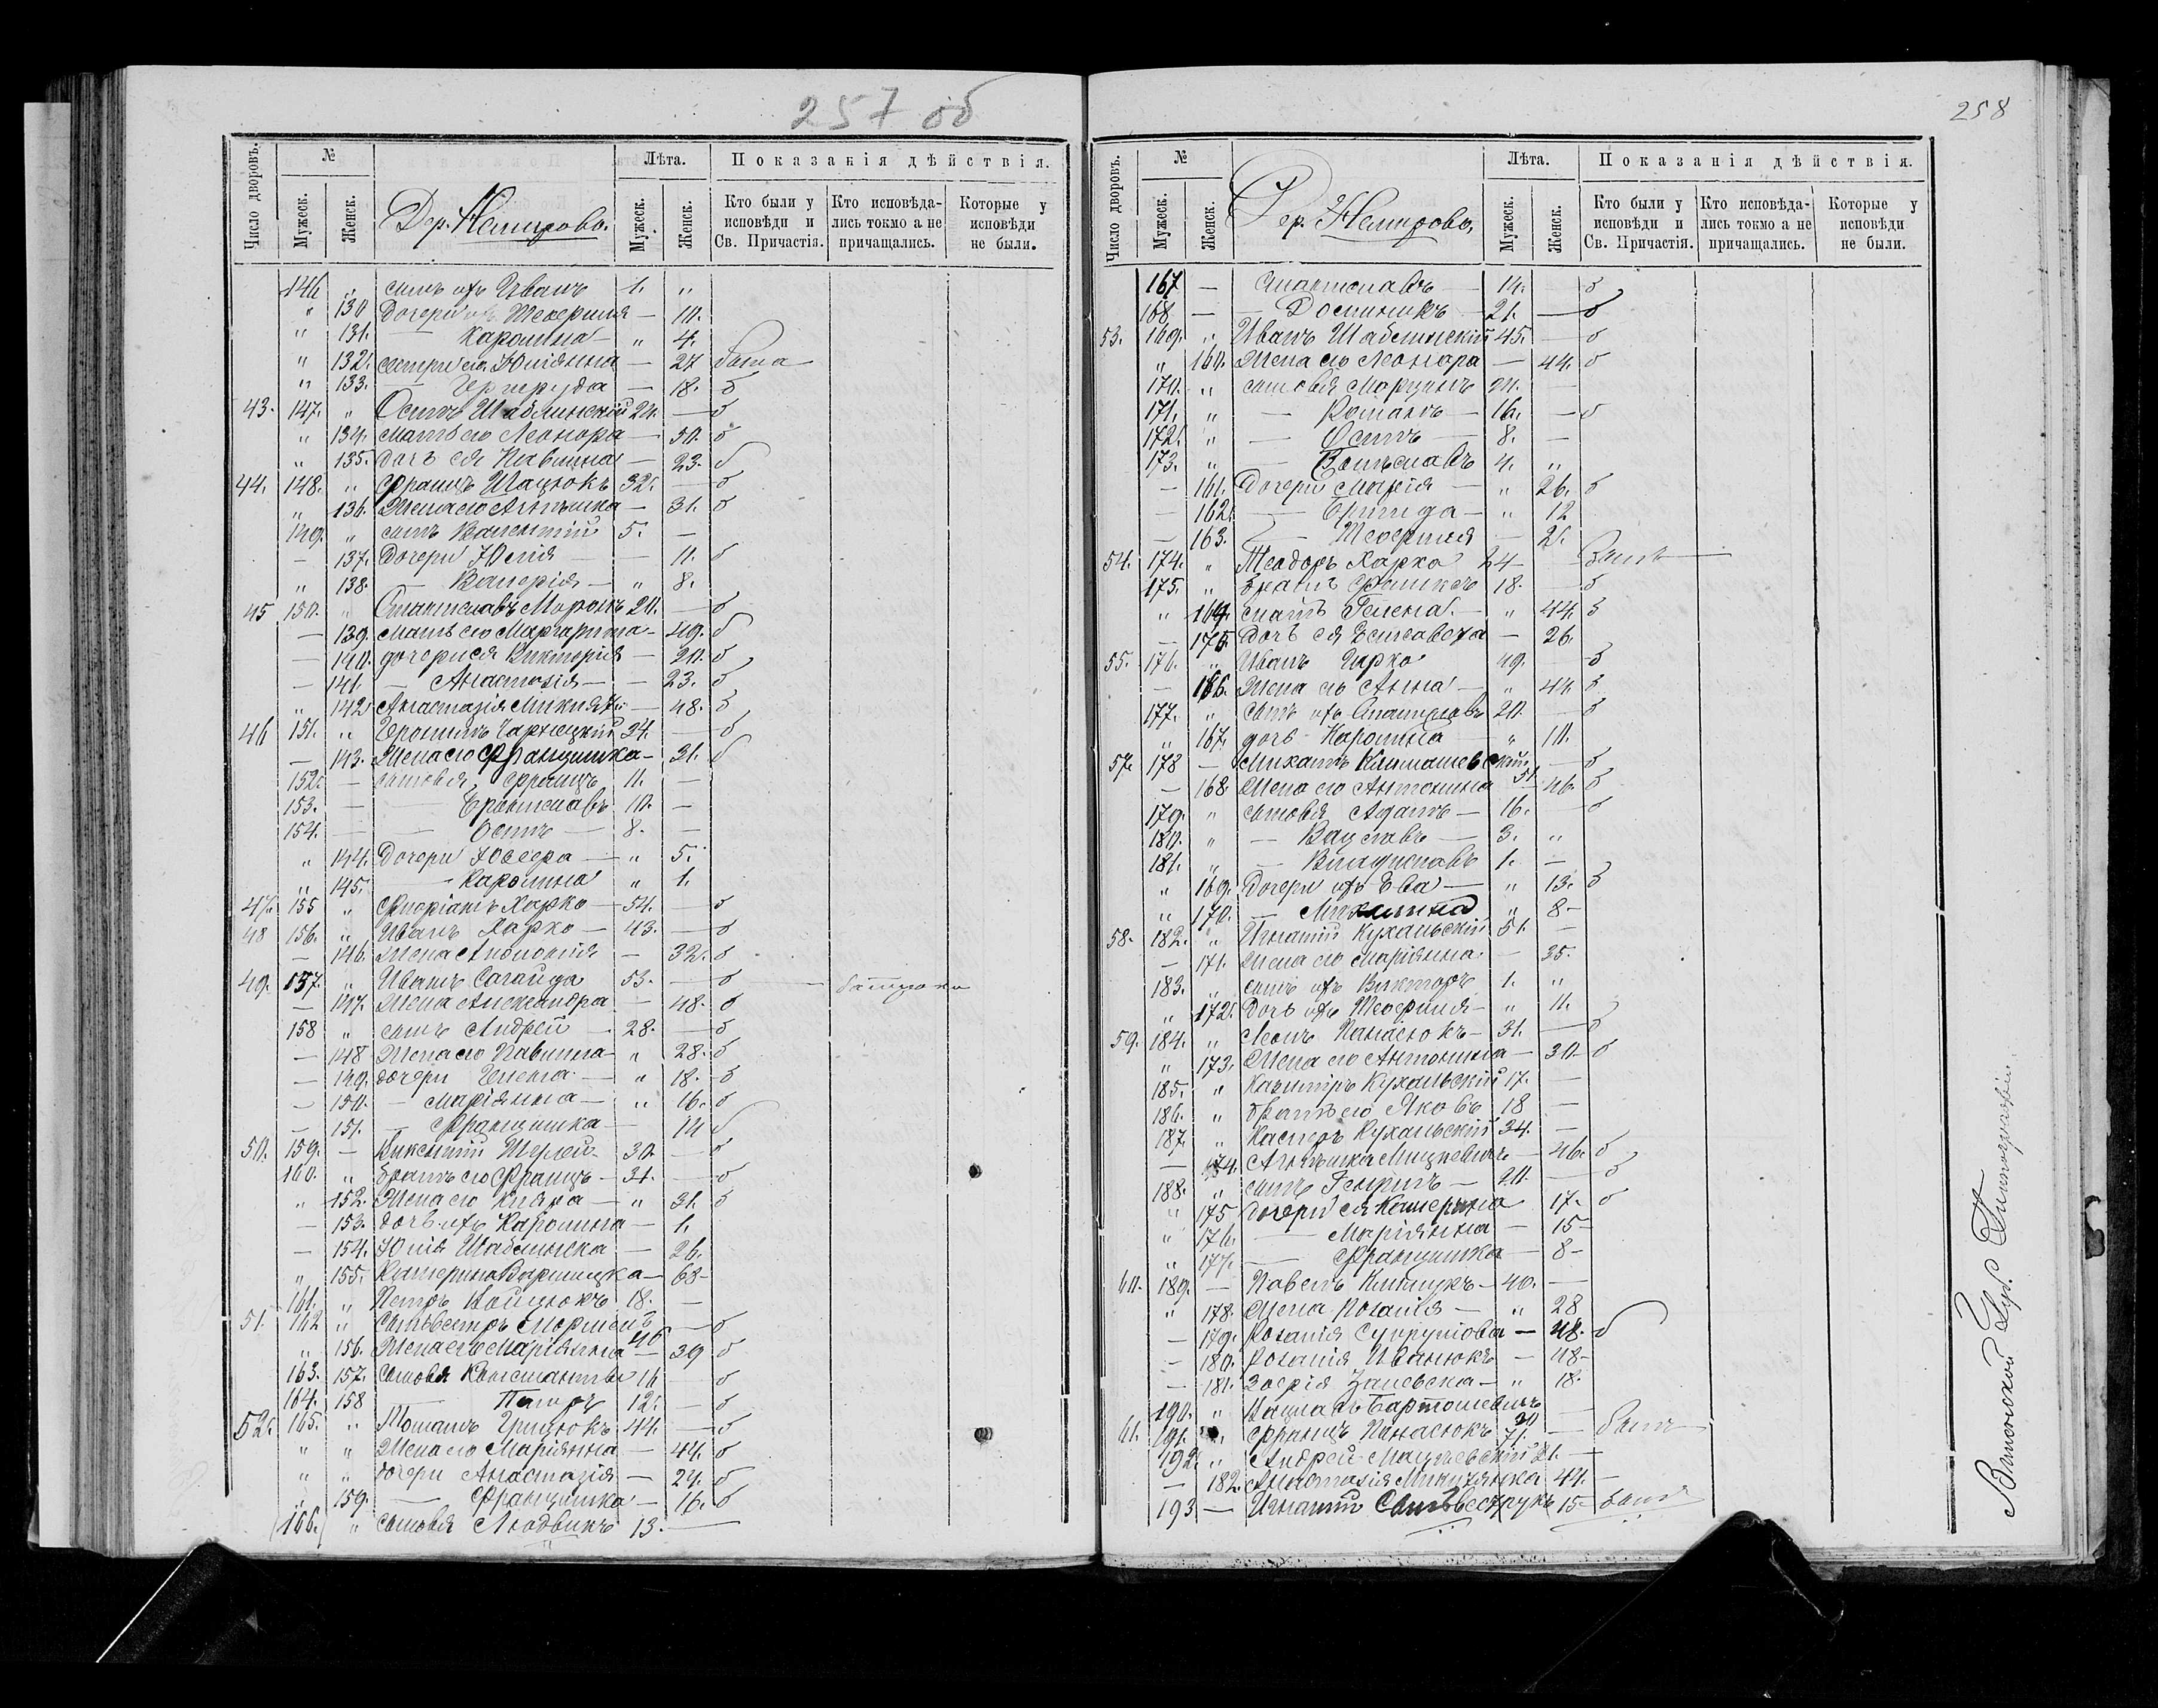 257 об
Число дворовъ. № Лѣта. Показанія дѣйствія.
Мужеск. Женск. Дер. Немировъ. Мужеск. Женск. Кто были у исповѣди и Св. Причастія. Кто исповѣдались токмо а не причащались. Которые у исповѣди не были.
146 „ сынъ ихъ Иванъ 1. „
„ 130 Дочери ихъ Теверина — 10.
„ 131. — Каролина — „ 4.
„ 132. сестры его Юліянна — 27 была
„ 133. — Гертруда — 18. б
43. 147. „ Осипъ Шаблинскій 24. — б
„ 134. мать его Леонора — 50. б
„ 135. дочь ея Павлина — 23. б
44. 148. „ Францъ Шацюкъ 32. — б
„ 136. Жена его Агнѣшка — 31. б
149. „ сынъ Валентій 5. —
— 137. Дочери Юлія — 11. б
„ 138. — Валерія — „ 8.
45 150. „ Станиславъ Моронь 20. — б
— 139. мать его Маргарита — 49. б
— 140. дочери ея Викторія — 20. б
— 141. — Анастазія — — 23. б
„ 142. Анастазія — 48. б
46 151. „ Геронимъ Чарнецкій 34. — б
— 143. Жена его Францишка — 31. б
152. — сыновья Францъ 11. —
153. — Брониславъ 10. —
154. — — Осипъ — 8. —
„ 144. Дочери Юзефа — „ 5.
„ 145. — Каролина „ 1.
47. 155 „ Флоріанъ Харко — 54. — б
48 156. „ Иванъ Харко — 43. — б
— 146. Жена Аполонія — 32. б
49. 157. „ Иванъ Сагайда 53. — б
— 147. Жена Александра — 48. б
158 „ сынъ Андрей — 28. — б
— 148 Жена его Павлина — „ 28. б
— 149. дочери Гелена — „ 18. б
— 150. — Маріянна — „ 16. б
— 151. — Францишка — 14 б
50. 159. — Викентій 30. — б
160. „ братъ его Францъ — 34. — б
„ 152. Жена его — „ 31. б
— 153. дочь ихъ Каролина — 1.
— 154. Юлія Шаблинска — 26.
„ 155. Катерина — 68 —
161. „ Петръ Войцюкъ 18. —
51. 162 „ Сильвестръ 46 — б
„ 156. Жена его Маріянна — 39 б
163. 157. Сыновья Константы 16 — б
164. 158 — Петръ 12. — б
52. 165. „ Томашъ Грицюкъ 44. — б
„ „ Жена его Маріянна — 44. б
„ „ дочери Анастазія — 24. б
„ 159. — Францишка — 16. б
166. „ сыновья Людвикъ 13. —
258
Число дворовъ. № Лѣта. Показанія дѣйствія.
Мужеск. Женск. Дер. Немировъ. Мужеск. Женск. Кто были у исповѣди и Св. Причастія. Кто исповѣдались токмо а не причащались. Которые у исповѣди не были.
167 — Станиславъ — 14. б
168. — — Доминикъ — 21. — б
53. 169. „ Иванъ Шаблинскій 45. — б
„ 160. Жена его Леонора — 44. б
170. „ сыновья Марцинъ 24. —
171. „ — Романъ — 16. — б
172. „ — Осипъ — 8. —
173. „ — Болеславъ 4. „
— 161. Дочери Марія — „ 26. б
— 162. — Бригида — „ 12
— 163. — Теверина — 2.
54. 174. „ Теодоръ Харко 24 — былъ
175. „ братъ 18. — б
„ 164. мать Гелена — „ 44. б
— 175. дочь ея Елисавета — 26.
55. 176. „ Иванъ Харко 49. — б
— 166. Жена его Анна — „ 44. б
177. „ сынъ ихъ Станиславъ 20. — б
„ 167. дочь Каролина — „ 10.
57. 178 — Михалъ Климашевскій 51 — б
— 168. Жена его Антонина — 46. б
179. „ сыновья Адамъ — 16. — б
180. „ — Вацлавъ — 3. „
181. „ — Владиславъ 1. —
„ 169. Дочери ихъ Ева — „ 13. б
„ 170. — Михалина „ 8 —
58. 182. „ Игнатій Кухальскій 51. —
— 171. Жена его Маріянна — 35.
183. „ сынъ ихъ Викторъ 1. „
„ 172. Дочь ихъ Теверина — „ 11.
59. 184. „ Леонъ Панасюкъ — 31. — б
„ 173. Жена его Антонина — 30 — б
185. „ Казимиръ Кухальскій 17. —
186. „ братъ его Яковъ 18 —
187. „ Касперъ Кухальскій 34. —
— 174. Агнѣшка Мицкевичъ — 46. б
188. „ сынъ Генрихъ — 20. — б
„ 175 Дочери ея Катерина 17. б
„ 176. — Маріянна — 15 —
„ 177. — Францишка — 8 —
60. 189. — Павелъ Климукъ — 40. —
„ 178. Жена Розалія — „ 28
— 179. Розалія Супрунова — 48. б
— 180. Розалія Иванюкъ — 48 —
— 181. Зофія Залевска — „ 18.
190. „ Вацлавъ Бартошевичъ 30 —
61. 191. „ Францъ Панасюкъ 71. — былъ
192. „ Андрей 21. —
— 182. Анастазія 44. —
193 — Игнатій Сильвеструкъ 15 — былъ
Виленской Губ. Типографіи.